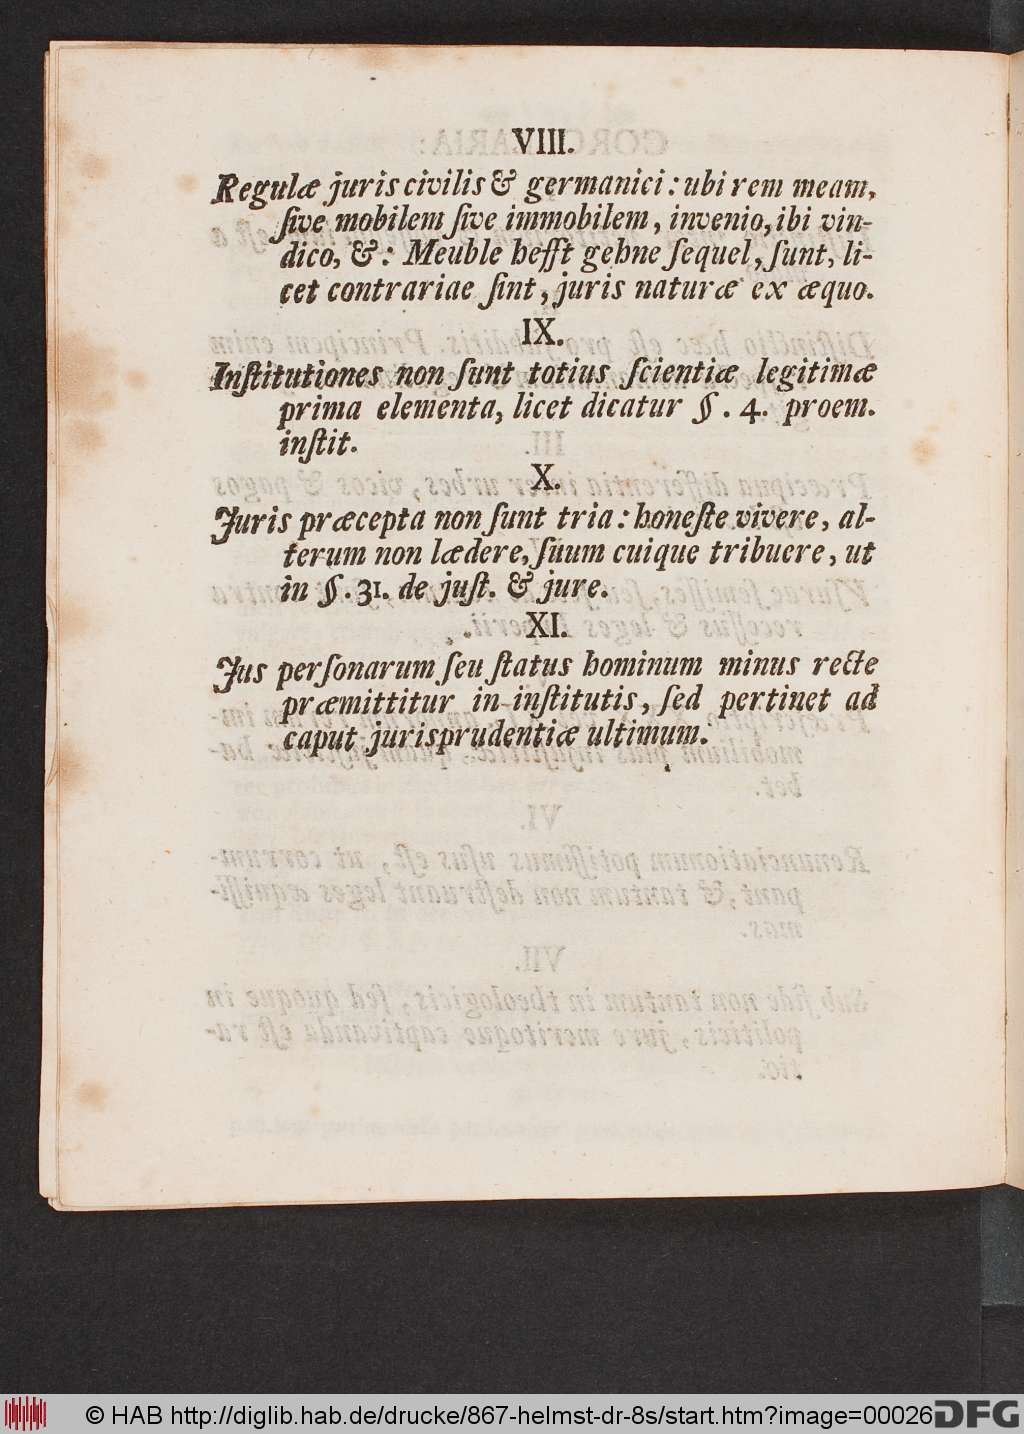 VIII.
Regulæ juris civilis & germanici: ubi rem meam,
ſive mobilem ſive immobilem, invenio, ibi vin-
dico, &: Meuble hefft gehne ſequel, ſunt, li-
cet contrariae ſint, juris naturæ ex æquo.
IX.
Inſtitutiones non ſunt totius ſcientiæ legitimæ
prima elementa, licet dicatur §. 4. proem.
inſtit.
X.
Juris præcepta non ſunt tria: honeſte vivere, al-
terum non lædere, ſuum cuique tribuere, ut
in §. 31. de juſt. & jure.
XI.
Jus perſonarum ſeu ſtatus hominum minus recte
præmittitur in inſtitutis, ſed pertinet ad
caput jurisprudentiæ ultimum.
© HAB http://diglib.hab.de/drucke/867-helmst-dr-8s/start.htm?image=00026
DFG